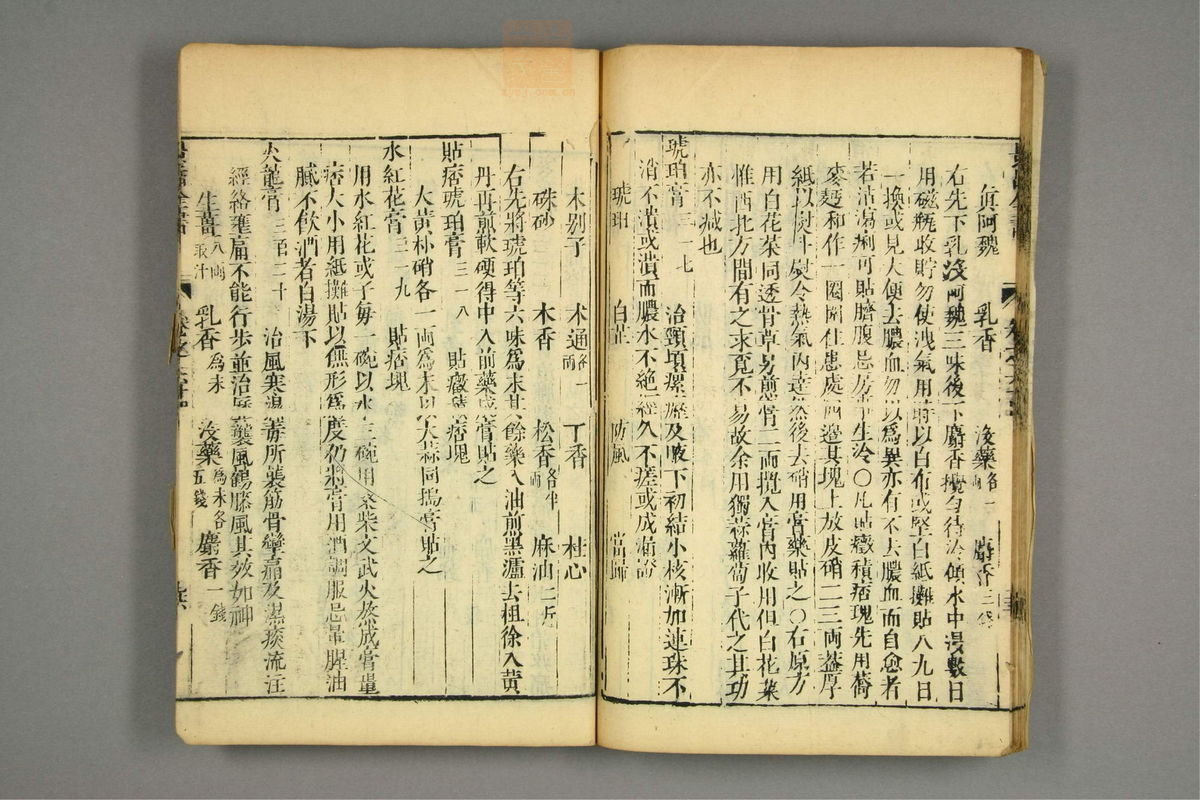 真阿魏 乳香 沒藥各一兩 麝香三錢
右先下乳沒阿魏三味後下麝香攪勻待冷傾水中浸數日
用磁瓶收貯勿使洩氣用時以白布或堅白紙攤貼八九日
一換或見大便去膿血勿以爲異亦有不去膿血而自愈者
若治瀉痢可貼臍腹忌房事生冷〇凡貼癥積痞塊先用蕎
麥麵和作一圈圍住患處四邊其塊上放皮硝二三兩蓋厚
紙以熨斗熨令熱氣內達然後去硝用膏藥貼之〇右原方
用白花菜同透骨草另煎膏二兩攪入膏內收用但白花菜
惟西北方間有之求覓不易故余用獨蒜蘿蔔子代之其功
亦不減也
琥珀膏 三一七 治頸項瘰癧及腋下初結小核漸如連珠不
消不潰或潰而膿水不絕經久不瘥或成漏證
琥珀 白芷 防風 當歸
木別子 木通各一兩 丁香 桂心
硃砂 木香 松香各半兩 麻油二斤
右先將琥珀等六味爲末其餘藥入油煎黑濾去粗徐入黃
丹再煎軟硬得中入前藥成膏貼之
貼痞琥珀膏 三一八 貼癥積痞塊
大黃朴硝各一兩爲末以大蒜同搗膏貼之
水紅花膏 三一九 貼痞塊
用水紅花或子每一碗以水三碗用桑柴文武火熬成膏量
痞大小用紙攤貼以無形爲度仍將膏用酒調服忌葷腥油
膩不飲酒者白湯下
火龍膏 三百二十 治風寒濕毒所襲筋骨攣痛及濕痰流注
經絡壅痛不能行步並治歷節風鶴膝風其效如神
生薑八兩取汁 乳香爲末 沒藥爲末各五錢 麝香一錢